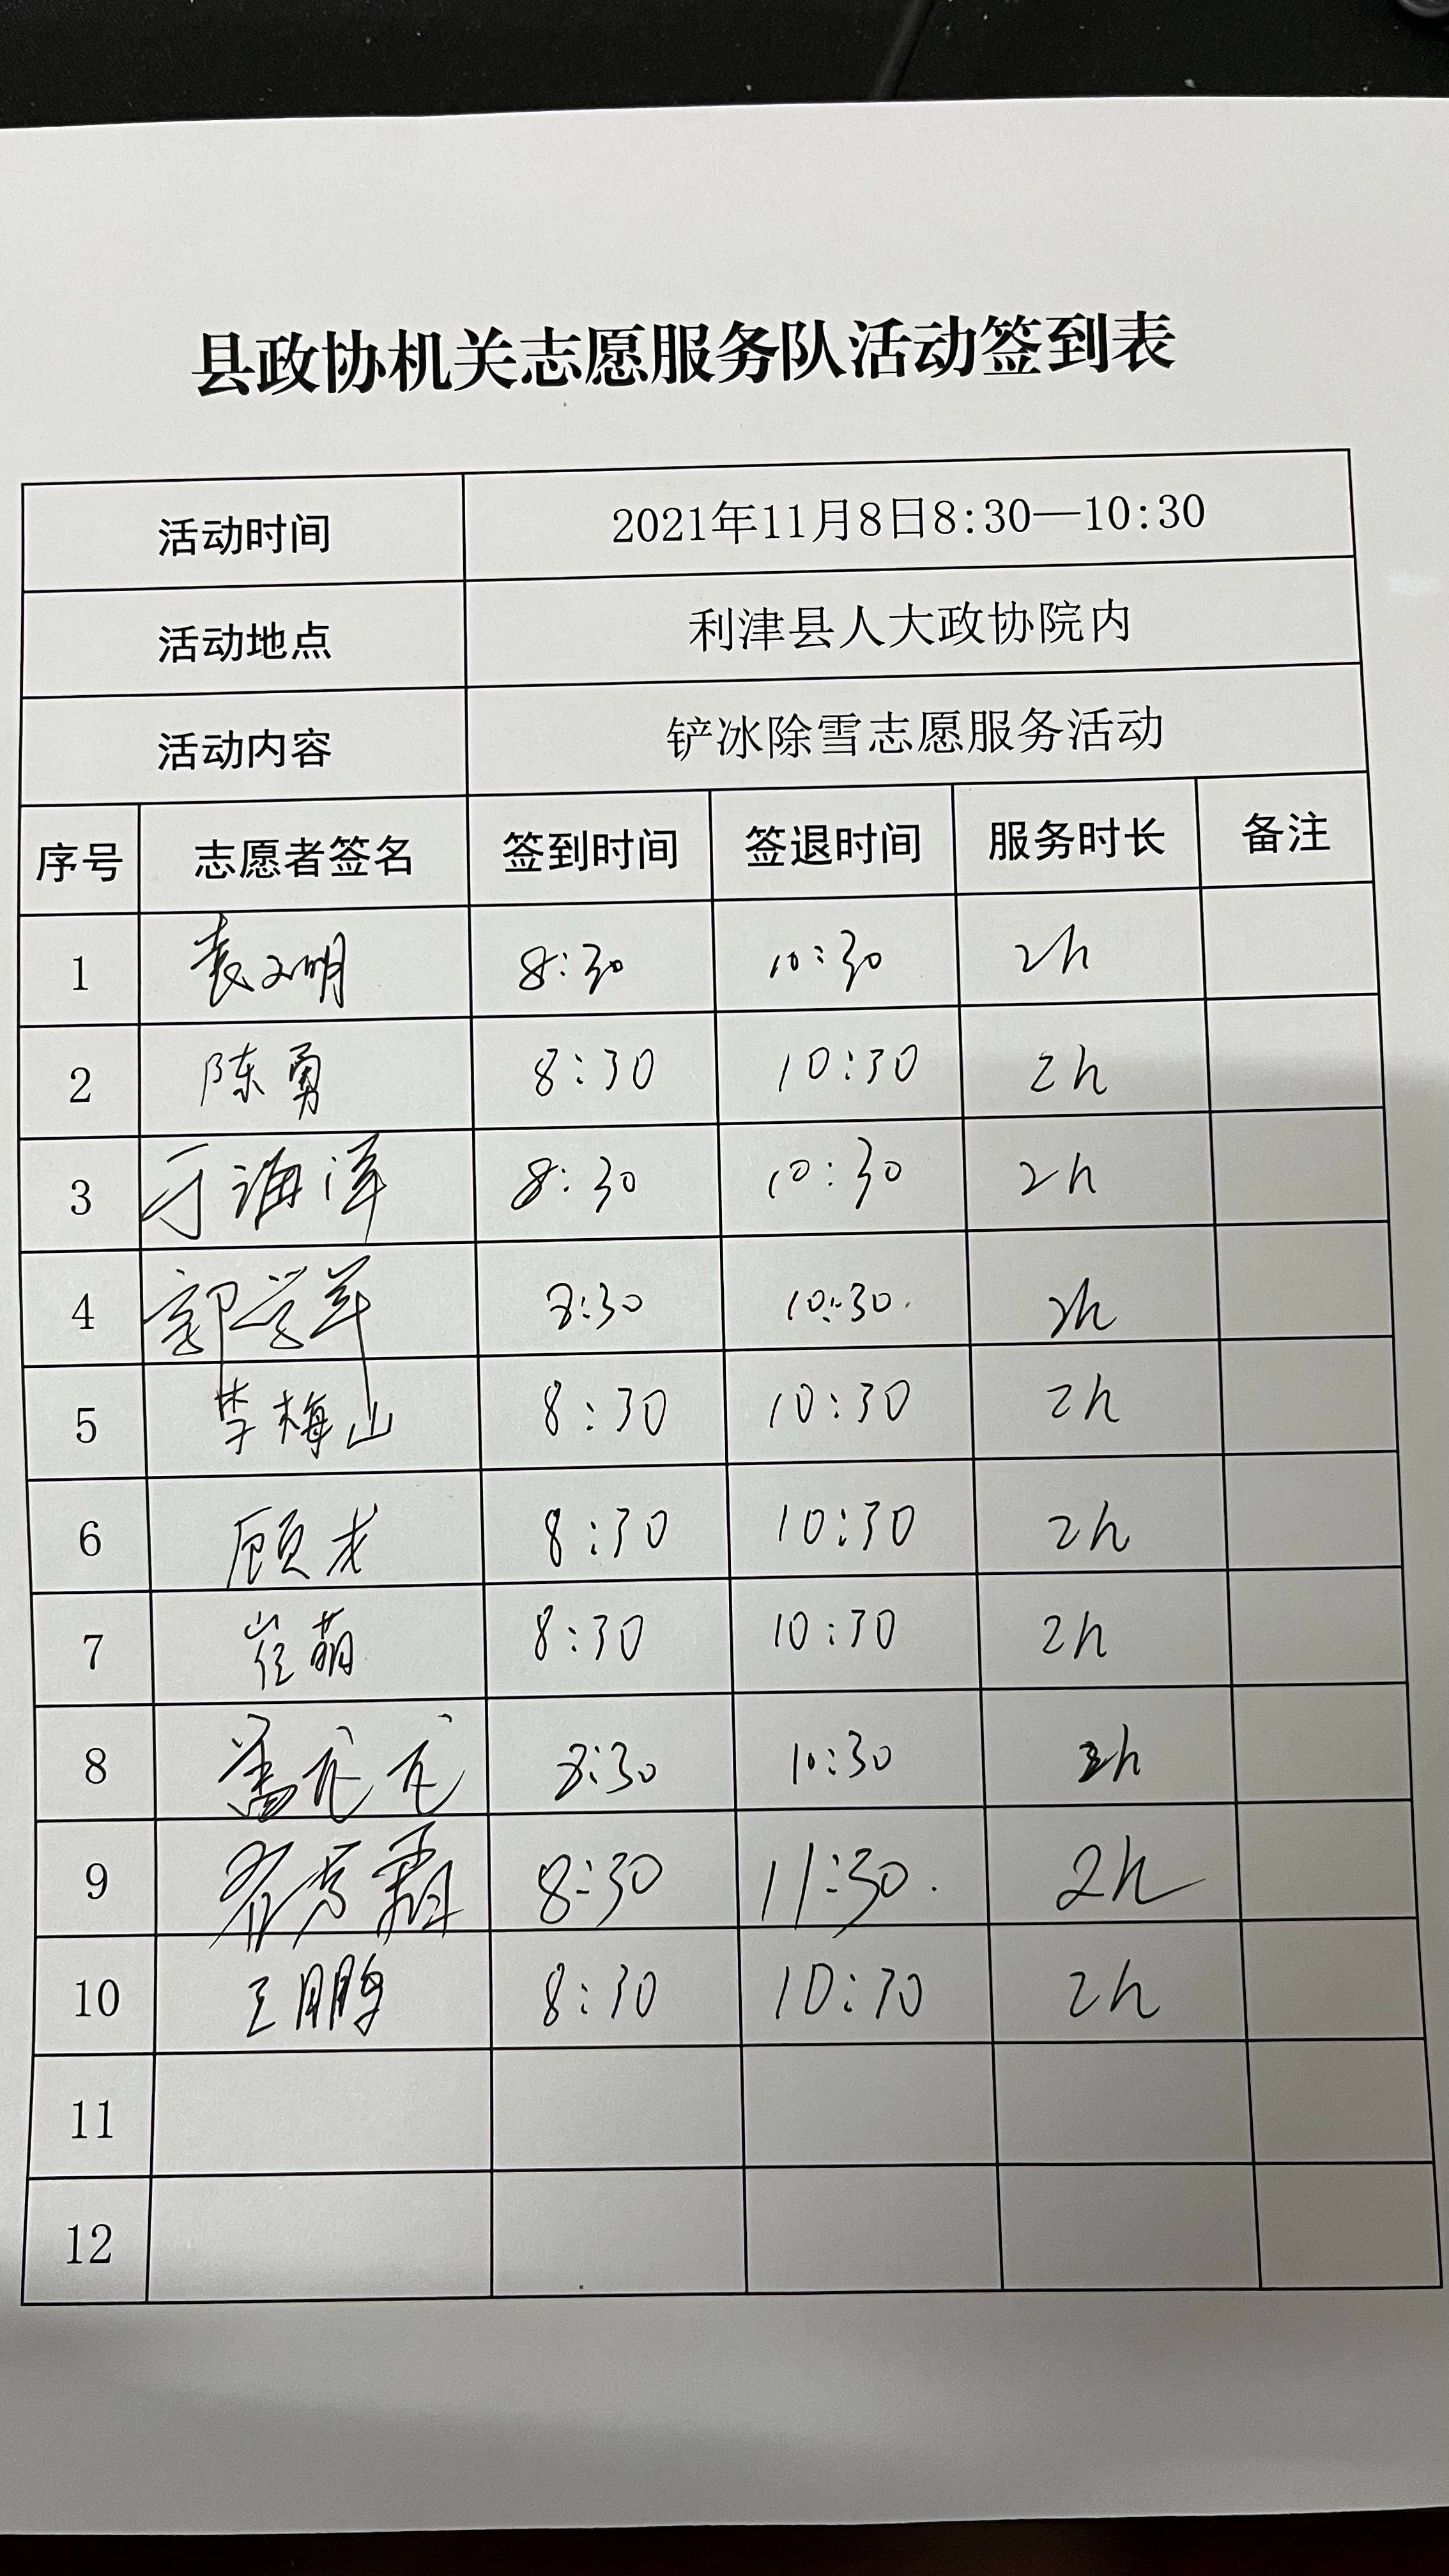 县政协机关志愿服务队活动签到表
活动时间 2021年11月8日8:30—10:30
活动地点 利津县人大政协院内
活动内容 铲冰除雪志愿服务活动
序号 志愿者签名 签到时间 签退时间 服务时长 备注
1 袁文明 8:30 10:30 2h
2 陈勇 8:30 10:30 2h
3 于海洋 8:30 10:30 2h
4 郭学军 8:30 10:30 2h
5 李梅山 8:30 10:30 2h
6 顾才 8:30 10:30 2h
7 崔萌 8:30 10:30 2h
8 盖 8:30 10:30 2h
9 8:30 11:30 2h
10 王鹏 8:30 10:30 2h
11
12